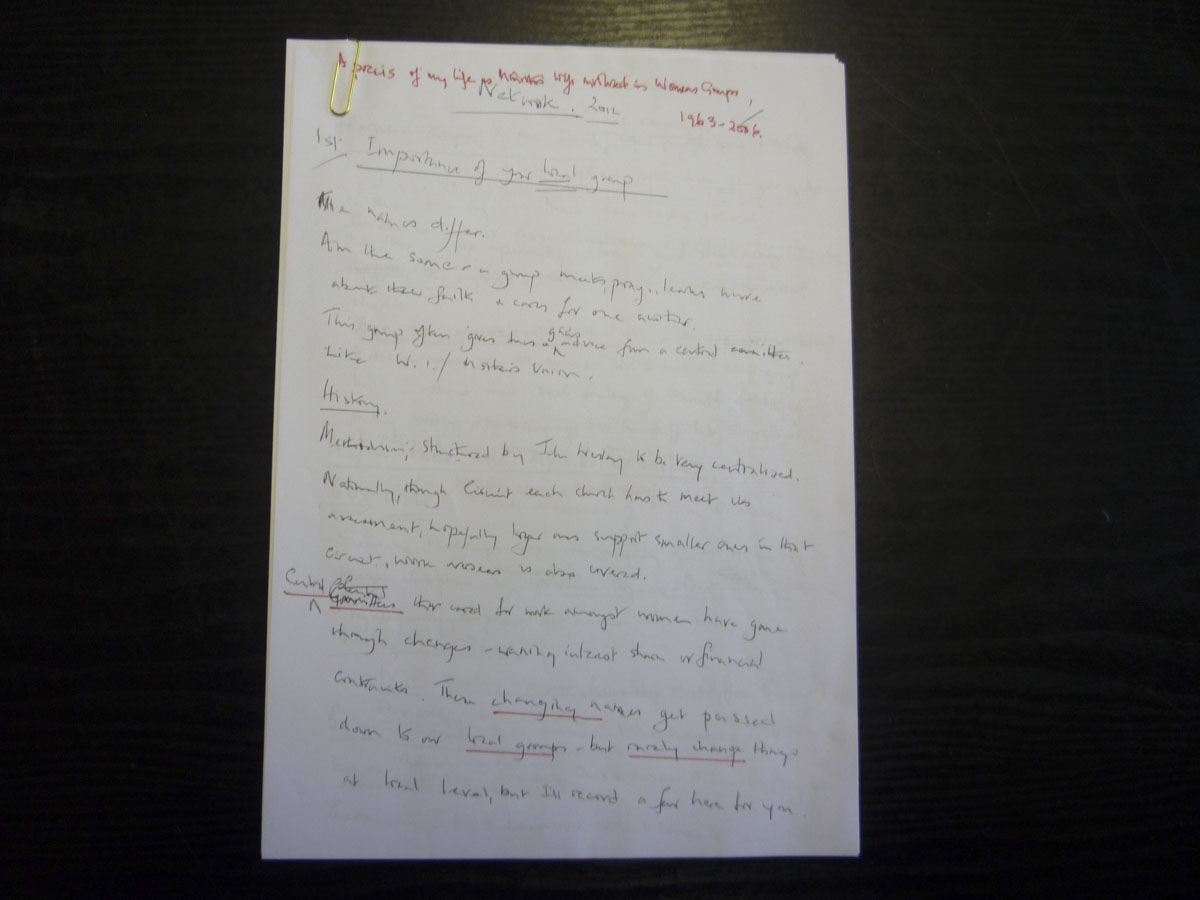 A precis of my life as involved in Womens Groups,
Network. 2012
1963-2006.
1st. Importance of your local group
The names differ.
Aim the same - a group meets, prays, learns more
about their faith & cares for one another.
This group often gives gains advice from a central committee.
Like W.I./ Mothers Union.
History.
Methodism, structured by John Wesley to be very centralised.
Nationally, through Circuit each church has to meet its
assessment, hopefully larger ones support smaller ones in that
circuit, work overseas is also covered.
Central Committees that cared for work amongst women have gone
through changes - waning interest shown or financial
constraints. Then changing names get passed
down to our local groups - but rarely change things
at local level, but I'll record a few here for you.